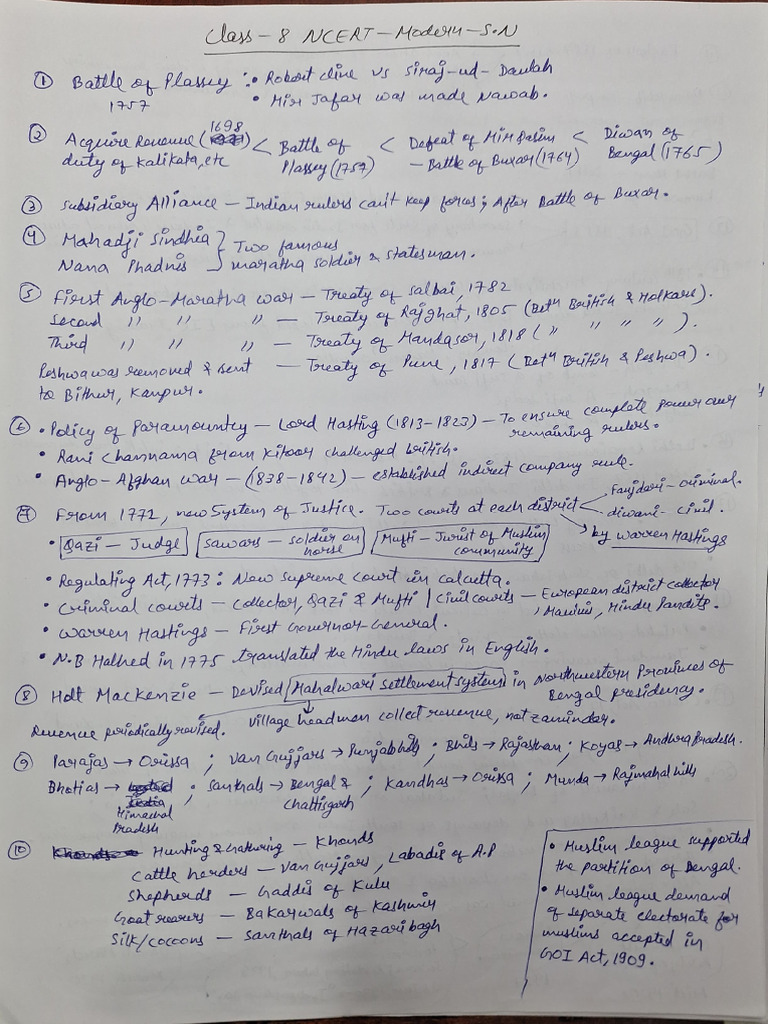 Class - 8 NCERT - Modern - S.N
① Battle of Plassey : • Robert Clive vs Siraj-ud-Daulah
1757 • Mir Jafar was made Nawab.
② Acquire Revenue (1698) < Battle of < Defeat of Mir Qasim < Diwan of
duty of Kalikata, etc Plassey (1757) - Battle of Buxar (1764) Bengal (1765)
③ Subsidiary Alliance - Indian rulers can't keep forces; After Battle of Buxar.
④ Mahadji Sindhia } Two famous
Nana Phadnis } maratha soldier & statesman.
⑤ First Anglo-Maratha war - Treaty of Salbai, 1782
Second " " " - Treaty of Rajghat, 1805 (Betn British & Holkars).
Third " " " - Treaty of Mandasor, 1818 ( " " " " ).
Peshwa was removed & sent - Treaty of Pune, 1817 (Betn British & Peshwa).
to Bithur, Kanpur.
⑥ • Policy of Paramountcy - Lord Hasting (1813-1823) - To ensure complete power over
remaining rulers.
• Rani Channama from Kitoor challenged british.
• Anglo-Afghan war - (1838-1842) - established indirect company rule.
⑦ From 1772, new System of Justice. Two courts at each district < Faujdari - criminal.
diwani - civil.
by Warren Hastings
• Qazi - Judge Sawars - soldier on Mufti - Jurist of Muslim
horse community
• Regulating Act, 1773 : New supreme court in calcutta.
• Criminal courts - Collector, Qazi & Mufti | Civil courts - European district collector
, Maulvis, Hindu Pandits.
• Warren Hastings - First Governor-General.
• N.B Halhed in 1775 translated the Hindu laws in English.
⑧ Holt Mackenzie - Devised Mahalwari settlement system in Northwestern Provinces of
Bengal presidency.
Revenue periodically revised. Village headman collect revenue, not zamindar.
⑨ Parajas → Orissa ; Van Gujjars → Punjab hills ; Bhils → Rajasthan ; Koyas → Andhra Pradesh.
Bhotias → Himachal Pradesh ; Santhals → Bengal & Chattisgarh ; Kandhas → Orissa ; Munda → Rajmahal hills
⑩ Hunting & Gathering - Khonds
Cattle herders - Van Gujjars, Labadis of A.P
Shepherds - Gaddis of Kulu
Goat rearers - Bakarwals of Kashmir
Silk/cocoons - Santhals of Hazaribagh
• Muslim league supported
the partition of Bengal.
• Muslim league demand
of separate electorate for
muslims accepted in
GOI Act, 1909.